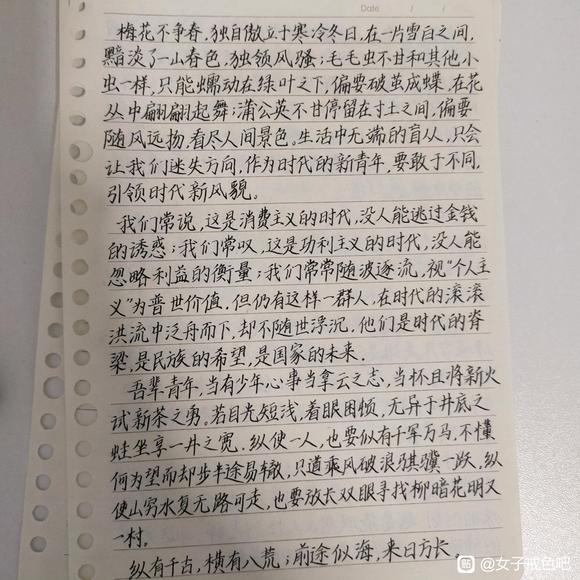 Date
梅花不争春，独自傲立于寒冷冬日，在一片雪白之间，
黯淡了一山春色，独领风骚；毛毛虫不甘和其他小
虫一样，只能蠕动在绿叶之下，偏要破茧成蝶，在花
丛中翩翩起舞；蒲公英不甘停留在寸土之间，偏要
随风远扬，看尽人间景色。生活中无端的盲从，只会
让我们迷失方向，作为时代的新青年，要敢于不同，
引领时代新风貌。
我们常说，这是消费主义的时代，没人能逃过金钱
的诱惑；我们常叹，这是功利主义的时代，没人能
忽略利益的衡量；我们常常随波逐流，视“个人主
义”为普世价值，但仍有这样一群人，在时代的滚滚
洪流中泛舟而下，却不随世浮沉，他们是时代的脊
梁，是民族的希望，是国家的未来。
吾辈青年，当有少年心事当拿云之志，当怀且将新火
试新茶之勇。若目光短浅，着眼困顿，无异于井底之
蛙坐享一井之宽。纵使一人，也要似有千军万马，不懂
何为望而却步半途易辙，只道乘风破浪骐骥一跃，纵
使山穷水复无路可走，也要放长双眼寻找柳暗花明又
一村。
纵有千古，横有八荒；前途似海，来日方长。
贴 @女子戒色吧